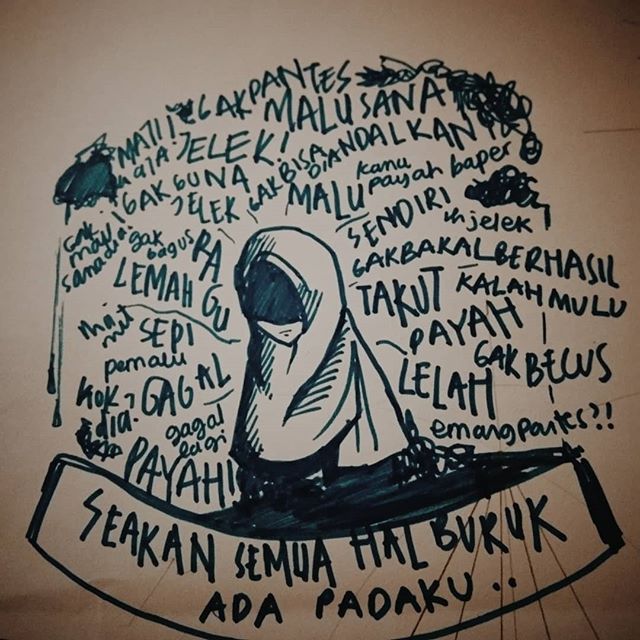 GAK PANTES
MATI! MALU SANA
JELEK!
GAK BISA DIANDALKAN
GAK GUNA
JELEK
MALU
kamu payah baper
SENDIRI
ih jelek
gak bagus
RAGU
LEMAH
GAK BAKAL BERHASIL
TAKUT
KALAH MULU
PAYAH
SEPI
pemalu
GAGAL
GAK BECUS
LELAH
KOK dia
gagal lagi
emang pantes?!
PAYAH!
SEAKAN SEMUA HAL BURUK
ADA PADAKU..